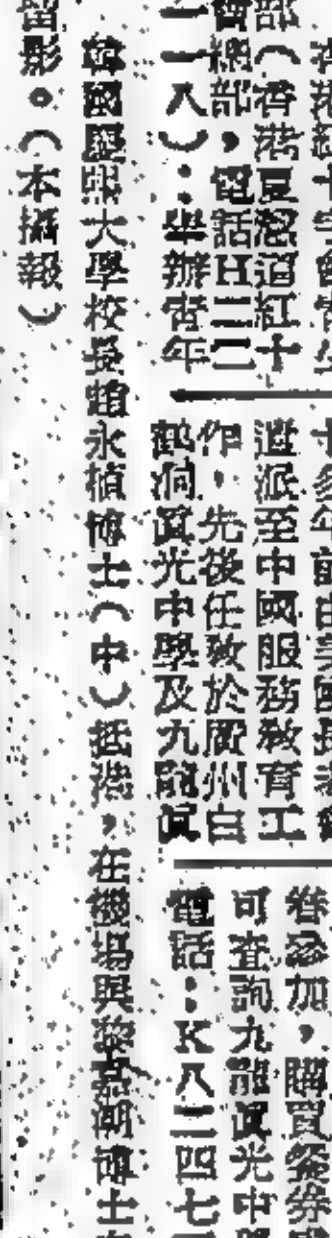 部（香港夏慤道紅十
會總部，電話H二二
一一八）：舉辦青年
十多年前由美國長老會
遣派至中國服務敎育工
作，先後任敎於廣州白
鶴洞眞光中學及九龍眞
券參加，購買餐券
可查詢九龍眞光中學
電話：K八二四七
韓國慶熙大學校長趙永植博士（中）抵港，在機場與黎嘉潮博士
留影。（本報攝）